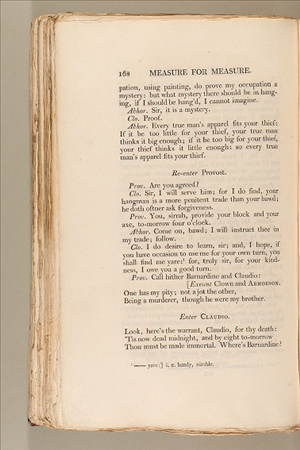 168 MEASURE FOR MEASURE.
pation, using painting, do prove my occupation a
mystery: but what mystery there should be in hang-
ing, if I should be hang'd, I cannot imagine.
Abhor. Sir, it is a mystery.
Clo. Proof.
Abhor. Every true man's apparel fits your thief:
If it be too little for your thief, your true man
thinks it big enough; if it be too big for your thief,
your thief thinks it little enough: so every true
man's apparel fits your thief.
Re-enter Provost.
Prov. Are you agreed?
Clo. Sir, I will serve him; for I do find, your
hangman is a more penitent trade than your bawd;
he doth oftner ask forgiveness.
Prov. You, sirrah, provide your block and your
axe, to-morrow four o'clock.
Abhor. Come on, bawd; I will instruct thee in
my trade; follow.
Clo. I do desire to learn, sir; and, I hope, if
you have occasion to use me for your own turn, you
shall find me yare: for, truly sir, for your kind-
ness, I owe you a good turn.
Prov. Call hither Barnardine and Claudio:
[Exeunt Clown and ABHORSON.
One has my pity; not a jot the other,
Being a murderer, though he were my brother.
Enter CLAUDIO.
Look, here's the warrant, Claudio, for thy death:
'Tis now dead midnight, and by eight to-morrow
Thou must be made immortal. Where's Barnardine?
— yare:] i. e. handy, nimble.